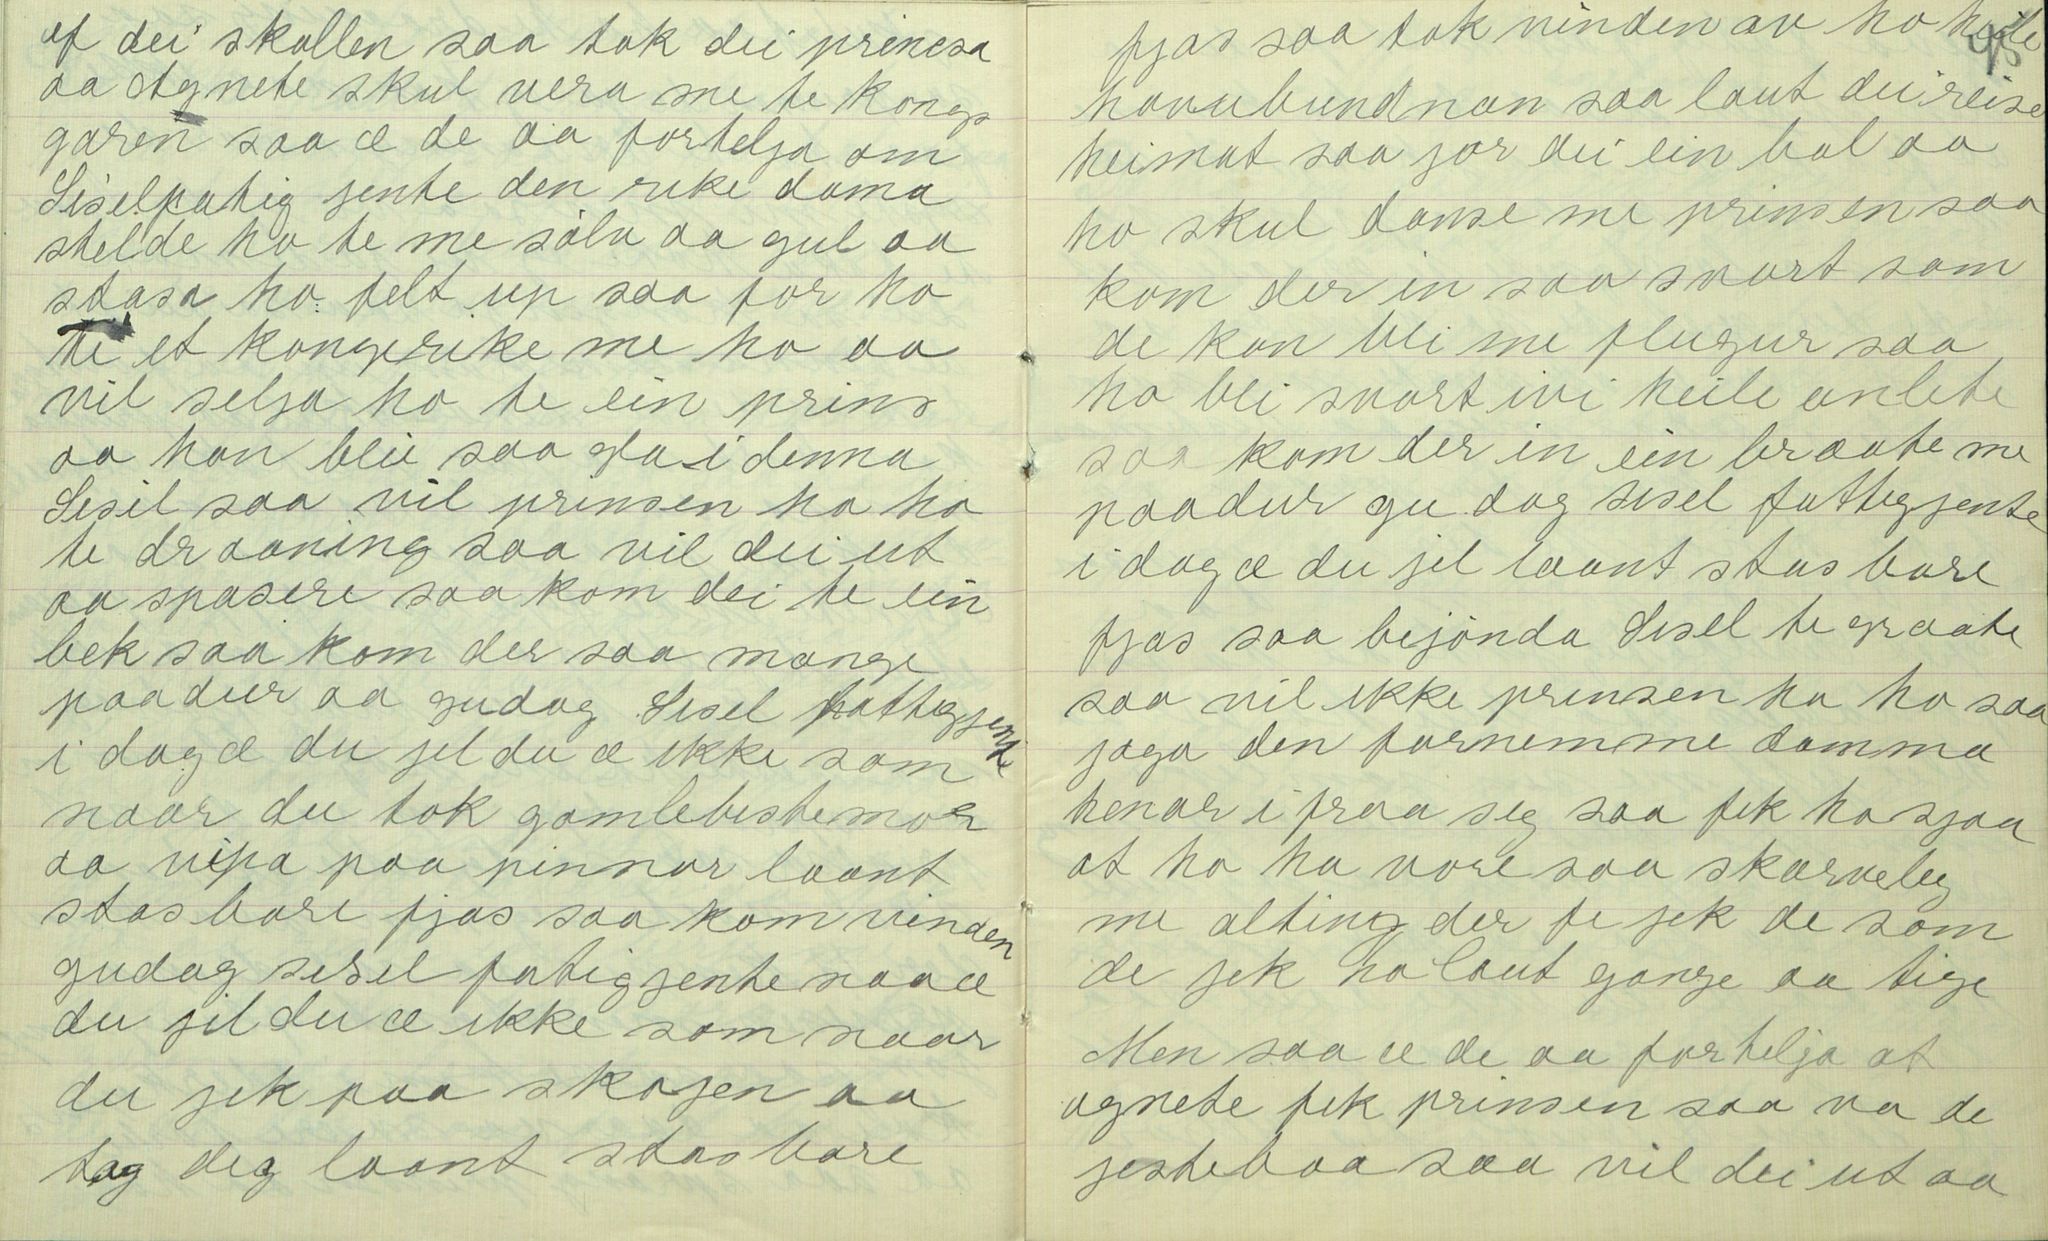 af dei skallen saa tok dei princsa
aa Agnete skul vera me te kongs
garen saa æ de aa fortelja om
Siselpatig jente den rike dama
stelde ho te me sølv aa gul aa
stasa ho felt up saa for ho
te et kongerike me ho aa
vil selja ho te ein prins
aa han blei saa gla i denna
Sesil saa vil prinsen ha ho
te draaning saa vil dei ut
aa spasere saa kom dei te ein
bek saa kom der saa mange
paadur aa gudag Sesel fattigjente
i dag æ du jil du æ ikke som
naar du tok gamlebestemor
aa vipa paa pinnar laant
stas bare fjas saa kom vinden
gudag sesel fatigjente naa æ
du jil du æ ikke som naar
du jek paa skogen aa
tog deg laant stas bare
fjas saa tok vinden av ho heile
havubundnan saa laut dei reise
heimat saa jor dei ein bal aa
ho skul danse me prinsen saa
kom der in saa svart som
de kan bli me flugur saa
ho bli svart ivi heile anlete
saa kom der in ein braate me
paadur gu dag sesel fattigjente
i dag æ du jil laant stas bare
fjas saa bejønda Sesel te graate
saa vil ikke prinsen ha ho saa
jaga den fornemme damma
henar ifraa seg saa fek ho sjaa
at ho ha vore saa skarveleg
me alting der fe jek de som
de jek ho laut gange aa tige
Men saa æ de aa fortelja at
agnete fek prinsen saa va de
jestebaa saa vil dei ut aa